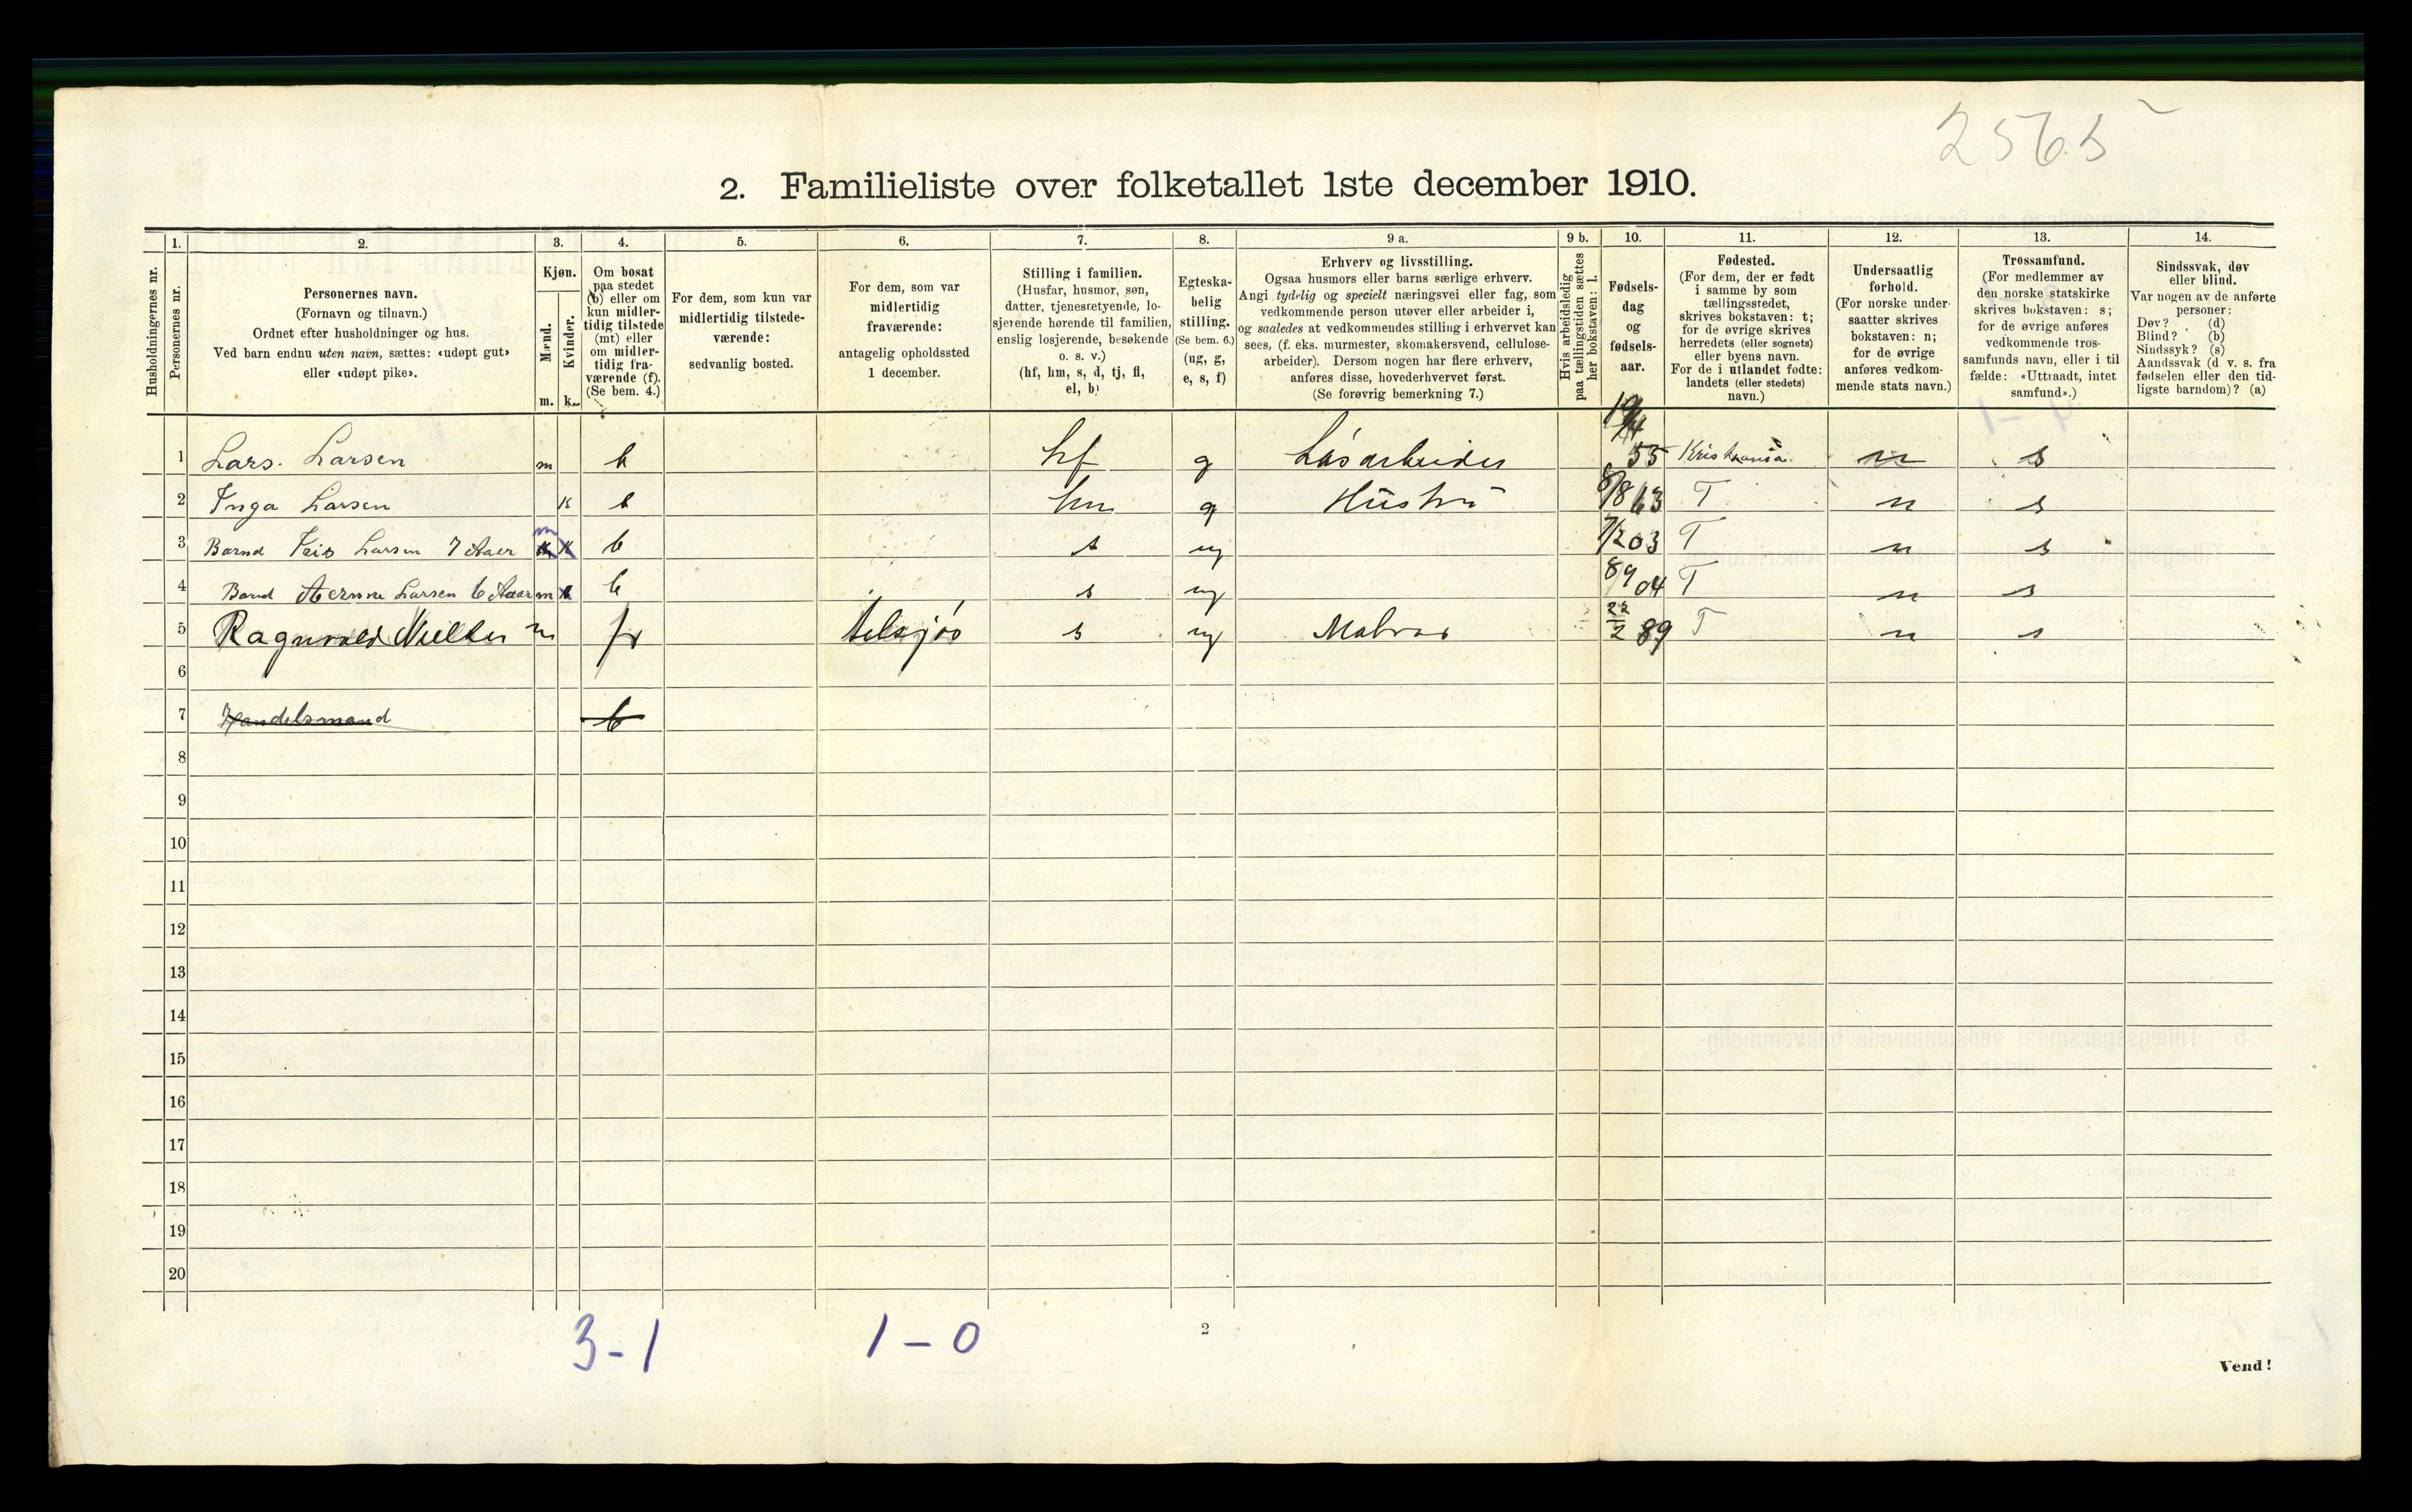 2565
2. Familieliste over folketallet 1ste december 1910.
Husholdningernes nr.
1.
Personernes nr.
2.
Personernes navn.
(Fornavn og tilnavn.)
Ordnet efter husholdninger og hus.
Ved barn endnu uten navn, sættes: «udøpt gut»
eller «udøpt pike».
3.
Kjøn.
Mænd.
Kvinder.
m. k.
4.
Om bosat
paa stedet
(b) eller om
kun midler-
tidig tilstede
(mt) eller
om midler-
tidig fra-
værende (f).
(Se bem. 4.)
5.
For dem, som kun var
midlertidig tilstede-
værende:
sedvanlig bosted.
6.
For dem, som var
midlertidig
fraværende:
antagelig opholdssted
1 december.
7.
Stilling i familien.
(Husfar, husmor, søn,
datter, tjenestetyende, lo-
sjerende hørende til familien,
enslig losjerende, besøkende
o. s. v.)
(hf, hm, s, d, tj, fl,
el, b)
8.
Egteska-
belig
stilling.
(Se bem. 6.)
(ug, g,
e, s, f)
9 a.
Erhverv og livsstilling.
Ogsaa husmors eller barns særlige erhverv.
Angi tydelig og specielt næringsvei eller fag, som
vedkommende person utøver eller arbeider i,
og saaledes at vedkommendes stilling i erhvervet kan
sees, (f. eks. murmester, skomakersvend, cellulose-
arbeider). Dersom nogen har flere erhverv,
anføres disse, hovederhvervet først.
(Se forøvrig bemerkning 7.)
9 b.
Hvis arbeidsledig
paa tællingstiden sættes
her bokstaven: l.
10.
Fødsels-
dag
og
fødsels-
aar.
11.
Fødested.
(For dem, der er født
i samme by som
tællingsstedet,
skrives bokstaven: t;
for de øvrige skrives
herredets (eller sognets)
eller byens navn.
For de i utlandet fødte:
landets (eller stedets)
navn.)
12.
Undersaatlig
forhold.
(For norske under-
saatter skrives
bokstaven: n;
for de øvrige
anføres vedkom-
mende stats navn.)
13.
Trossamfund.
(For medlemmer av
den norske statskirke
skrives bokstaven: s;
for de øvrige anføres
vedkommende tros-
samfunds navn, eller i til
fælde: «Uttraadt, intet
samfund».)
14.
Sindssvak, døv
eller blind.
Var nogen av de anførte
personer:
Døv? (d)
Blind? (b)
Sindssyk? (s)
Aandssvak (d. v. s. fra
fødselen eller den tid-
ligste barndom)? (a)
1 Lars. Larsen m b hf g Løsarbeider 55 Kristiania n s
2 Inga Larsen K b hm g Hustru 8/8 63 T n s
3 Larsen 7 Aaer m b s ug 7/2 03 T n s
4 Larsen 6 Aaer m b s ug 8/9 04 T n s
5 Ragnvald m fr s ug 22/2 89 T n s
6
7 Handelsmand b
8
9
10
11
12
13
14
15
16
17
18
19
20
3-1 1-0
2
Vend!